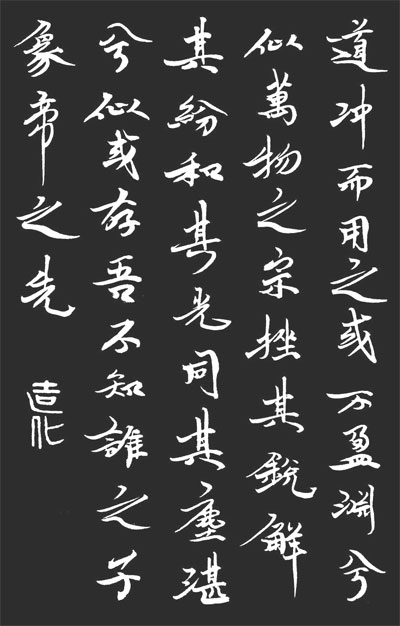 道冲而用之或不盈渊兮
似萬物之宗挫其銳解
其紛和其光同其塵湛
兮似或存吾不知誰之子
象帝之先
造化